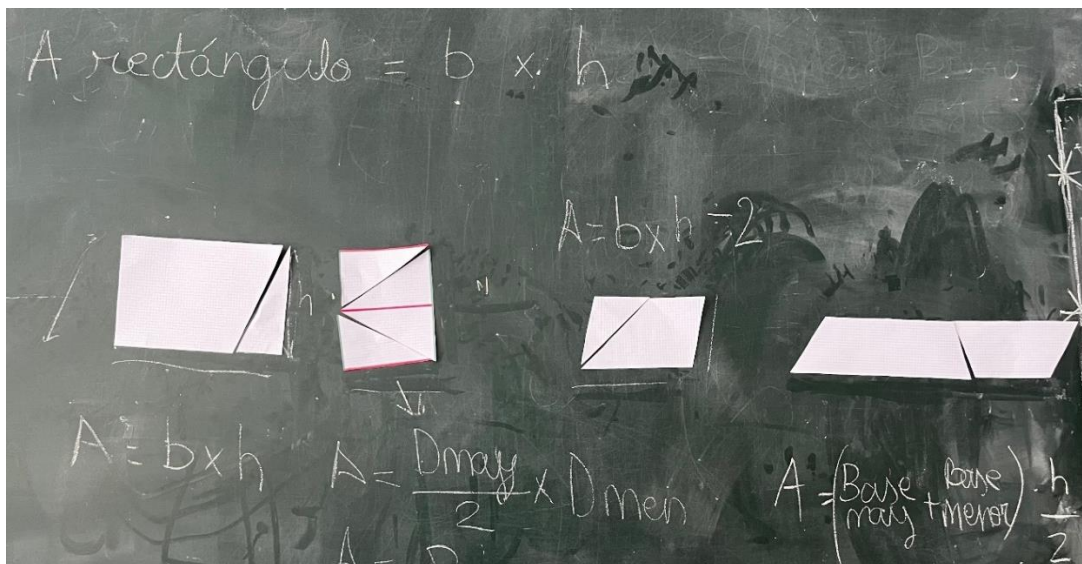 A rectángulo = b x h
A=bxh÷2
h
A=bxh
A= Dmay/2 x Dmen
A=(Base may + base menor) · h/2
A=